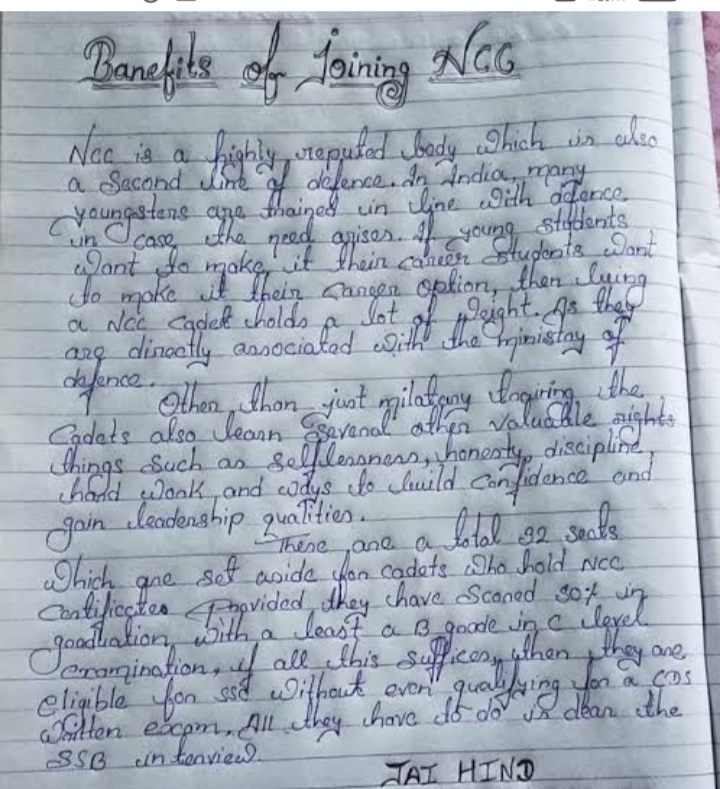 Banefits of Joining NCC
NCC is a highly reputed body which is also
a Second line of defence. In India, many
youngsters are trained in line with defence
in case the need arises. If young students
want to make it their career students want
to make it their career option, then being
a NCC cadet holds a lot of weight. As they
are directly associated with the ministry of
defence.
Other than just military the
Cadets also learn several other valuable rights
things such as selflessness, honesty, discipline,
hard work, and ways to build confidence and
gain leadership qualities.
There are a total 32 seats
which are set aside for cadets who hold NCC
Certificates provided they have scored 50% in
graduation with a least a B grade in C level
examination, if all this suffices, then they are
eligible for ssb without even qualifying for a CDS
written exam. All they have to do is clear the
SSB interview.
JAI HIND